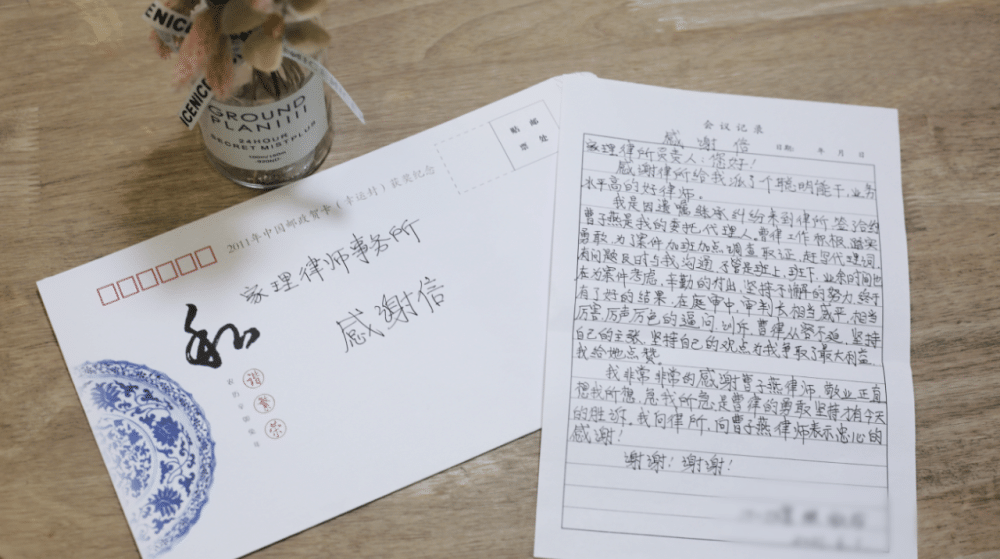 CENICE
ICENICE
GROUND
PLAN!!!!
24HOUR
SECRET MISTPLUS
邮票
贴处
2011年中国邮政贺卡（幸运封）获奖纪念
家理律师事务所
感谢信
和
谐
繁
荣
会议记录
感谢信
日期: 年 月 日
家理律所负责人：您好！
感谢律所给我派了个聪明能干，业务
水平高的好律师。
我是因遗嘱继承纠纷来到律所，签洽约
曹子燕是我的委托代理人，曹律工作积极，踏实
勇敢，为了案件加班加点，调查取证，赶写代理词，
有问题及时与我沟通，不管是班上，班下，业余时间也
在为案件考虑，辛勤的付出，坚持于懈的努力，终于
有了好的结果，在庭审中，审判长相当威严，相当
厉害，厉声厉色的逼问，训斥，曹律从容不迫，坚持
自己的主张，坚持自己的观点为我争取了最大利益，
我给她点赞。
我非常非常的感谢曹子燕律师，敬业，正直
想我所想，急我所急是曹律的勇敢坚持才有今天
的胜诉，我向律所，向曹子燕律师表示忠心的
感谢！
谢谢！谢谢！